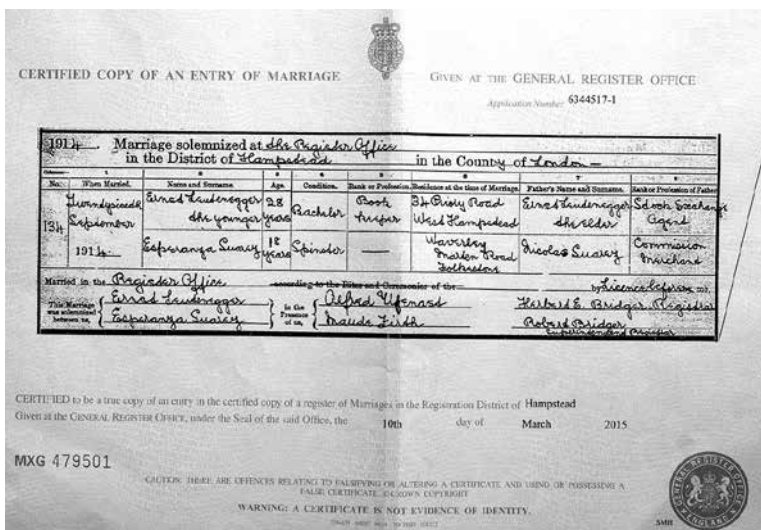 CERTIFIED COPY OF AN ENTRY OF MARRIAGE
GIVEN AT THE GENERAL REGISTER OFFICE
Application Number 6344517-1
1914. Marriage solemnized at the Register Office
in the District of Hampstead in the County of London
No. When Married. Name and Surname. Age. Condition. Rank or Profession. Residence at the time of Marriage. Father's Name and Surname. Rank or Profession of Father
134
September
1914
Ernst Laudenegger
the younger
28
years
Bachelor
Book
keeper
34 Priory Road
West Hampstead
Ernst Laudenegger
the elder
Stock Exchange
Agent
Esperanza Suarez
18
years
Spinster
—
Waverley
Road
Nicolas Suarez
Commission
Merchant
Married in the Register Office according to the Rites and Ceremonies of the by Licence before me,
This Marriage was solemnized between us,
Ernst Laudenegger
Esperanza Suarez
in the Presence of us,
Alfred
Maude Firth
Herbert E. Bridger, Registrar
Robert Bridger
Superintendent Registrar
CERTIFIED to be a true copy of an entry in the certified copy of a register of Marriages in the Registration District of Hampstead
Given at the GENERAL REGISTER OFFICE, under the Seal of the said Office, the 10th day of March 2015
MXG 479501
CAUTION: THERE ARE OFFENCES RELATING TO FALSIFYING OR ALTERING A CERTIFICATE AND USING OR POSSESSING A
FALSE CERTIFICATE. © CROWN COPYRIGHT
WARNING: A CERTIFICATE IS NOT EVIDENCE OF IDENTITY.
GENERAL REGISTER OFFICE
ENGLAND